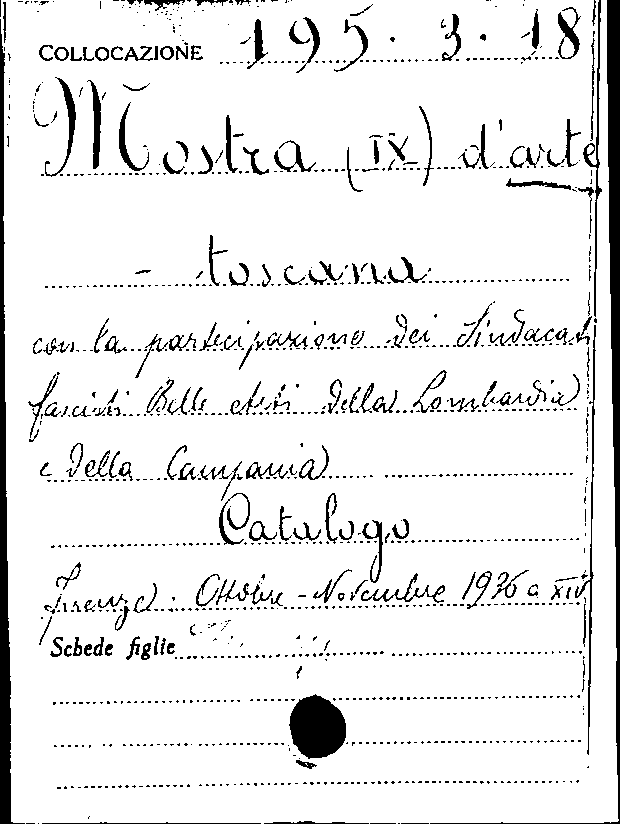 COLLOCAZIONE 195. 3. 18
Mostra (IX) d'arte
- toscana
con la partecipazione dei Sindacati
fascisti Belle Arti della Lombardia
e della Campania
Catalogo
Firenze. Ottobre - Novembre 1936 a XIV
Schede figlie